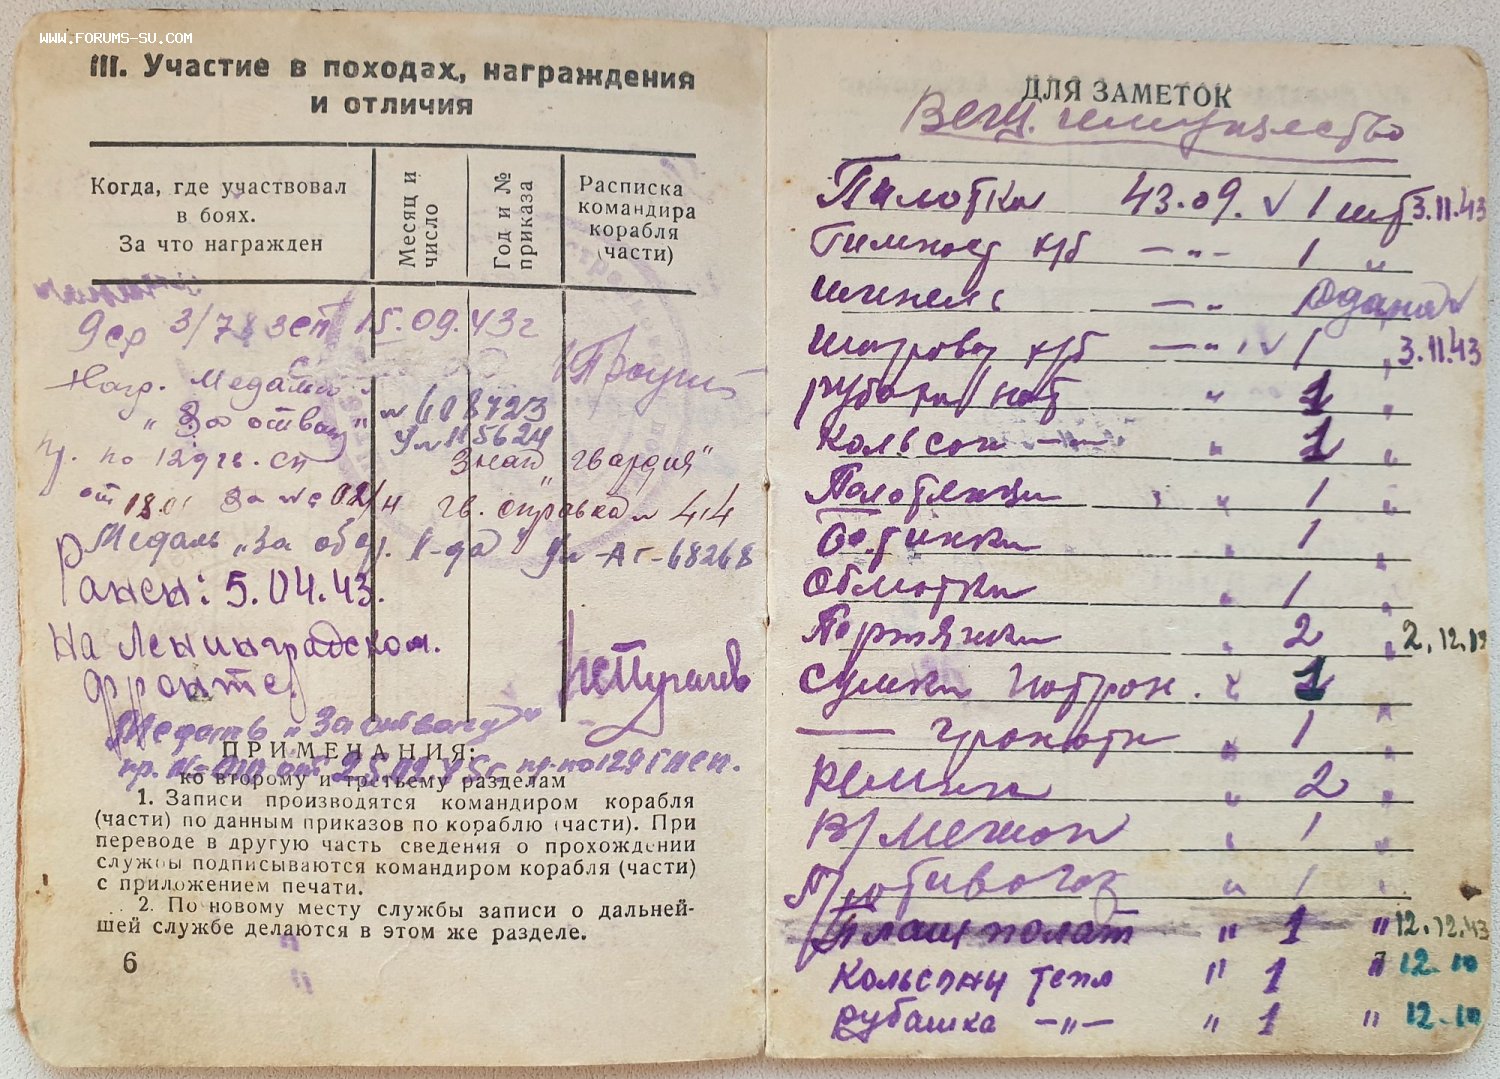 WWW.FORUMS-SU.COM
III. Участие в походах, награждения
и отличия
Когда, где участвовал
в боях.
За что награжден
Месяц и
число
Год и №
приказа
Расписка
командира
корабля
(части)
15.09.43г
Нагр. Медалью
"За отвагу" № 608723
Уд № 115624
пр. по 129 гв. сп Знак "Гвардия"
от 18.01 За № 02/н гв. справка № 44
Медаль "За обор. Л-да" Уд-АГ-68268
Ранен: 5.04.43.
На Ленинградском.
фронте.
Пугачев
Медаль "За отвагу"
ПРИМЕЧАНИЯ:
ко второму и третьему разделам
1. Записи производятся командиром корабля
(части) по данным приказов по кораблю (части). При
переводе в другую часть сведения о прохождении
службы подписываются командиром корабля (части)
с приложением печати.
2. По новому месту службы записи о дальней-
шей службе делаются в этом же разделе.
6
ДЛЯ ЗАМЕТОК
Вещ. имущество
Пилотка 43.09. √ 1 шт 3.11.43
Гимнаст х/б —"— 1 "
шинель —"
шаровар х/б —" √ 1 " 3.11.43
рубаха нат " 1 "
Кольсон —"— " 1 "
Полотенце " 1 "
Ботинки " 1 "
Обмотки " 1 "
Портянки " 2 " 2.12.43
Сумка патрон. " 1
— гранатн " 1 "
Ремни " 2 "
В/мешок " 1 "
Противогаз " 1 "
Плащ палат " 1 " 12.12.43
Кольсоны тепл " 1 " 12.10
рубашка —"— " 1 " 12.10